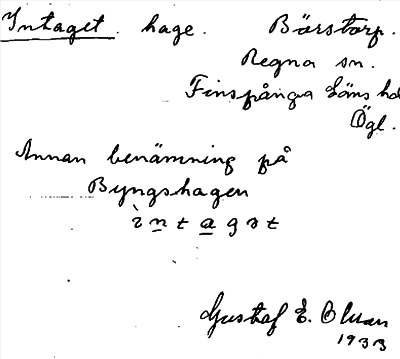 Intaget. hage. Bärstorp.
Regna sn.
Finspånga läns hd
Ögl.
Annan benämning på
Byngshagen
ìntagət
Gustaf E. Olsson
1933